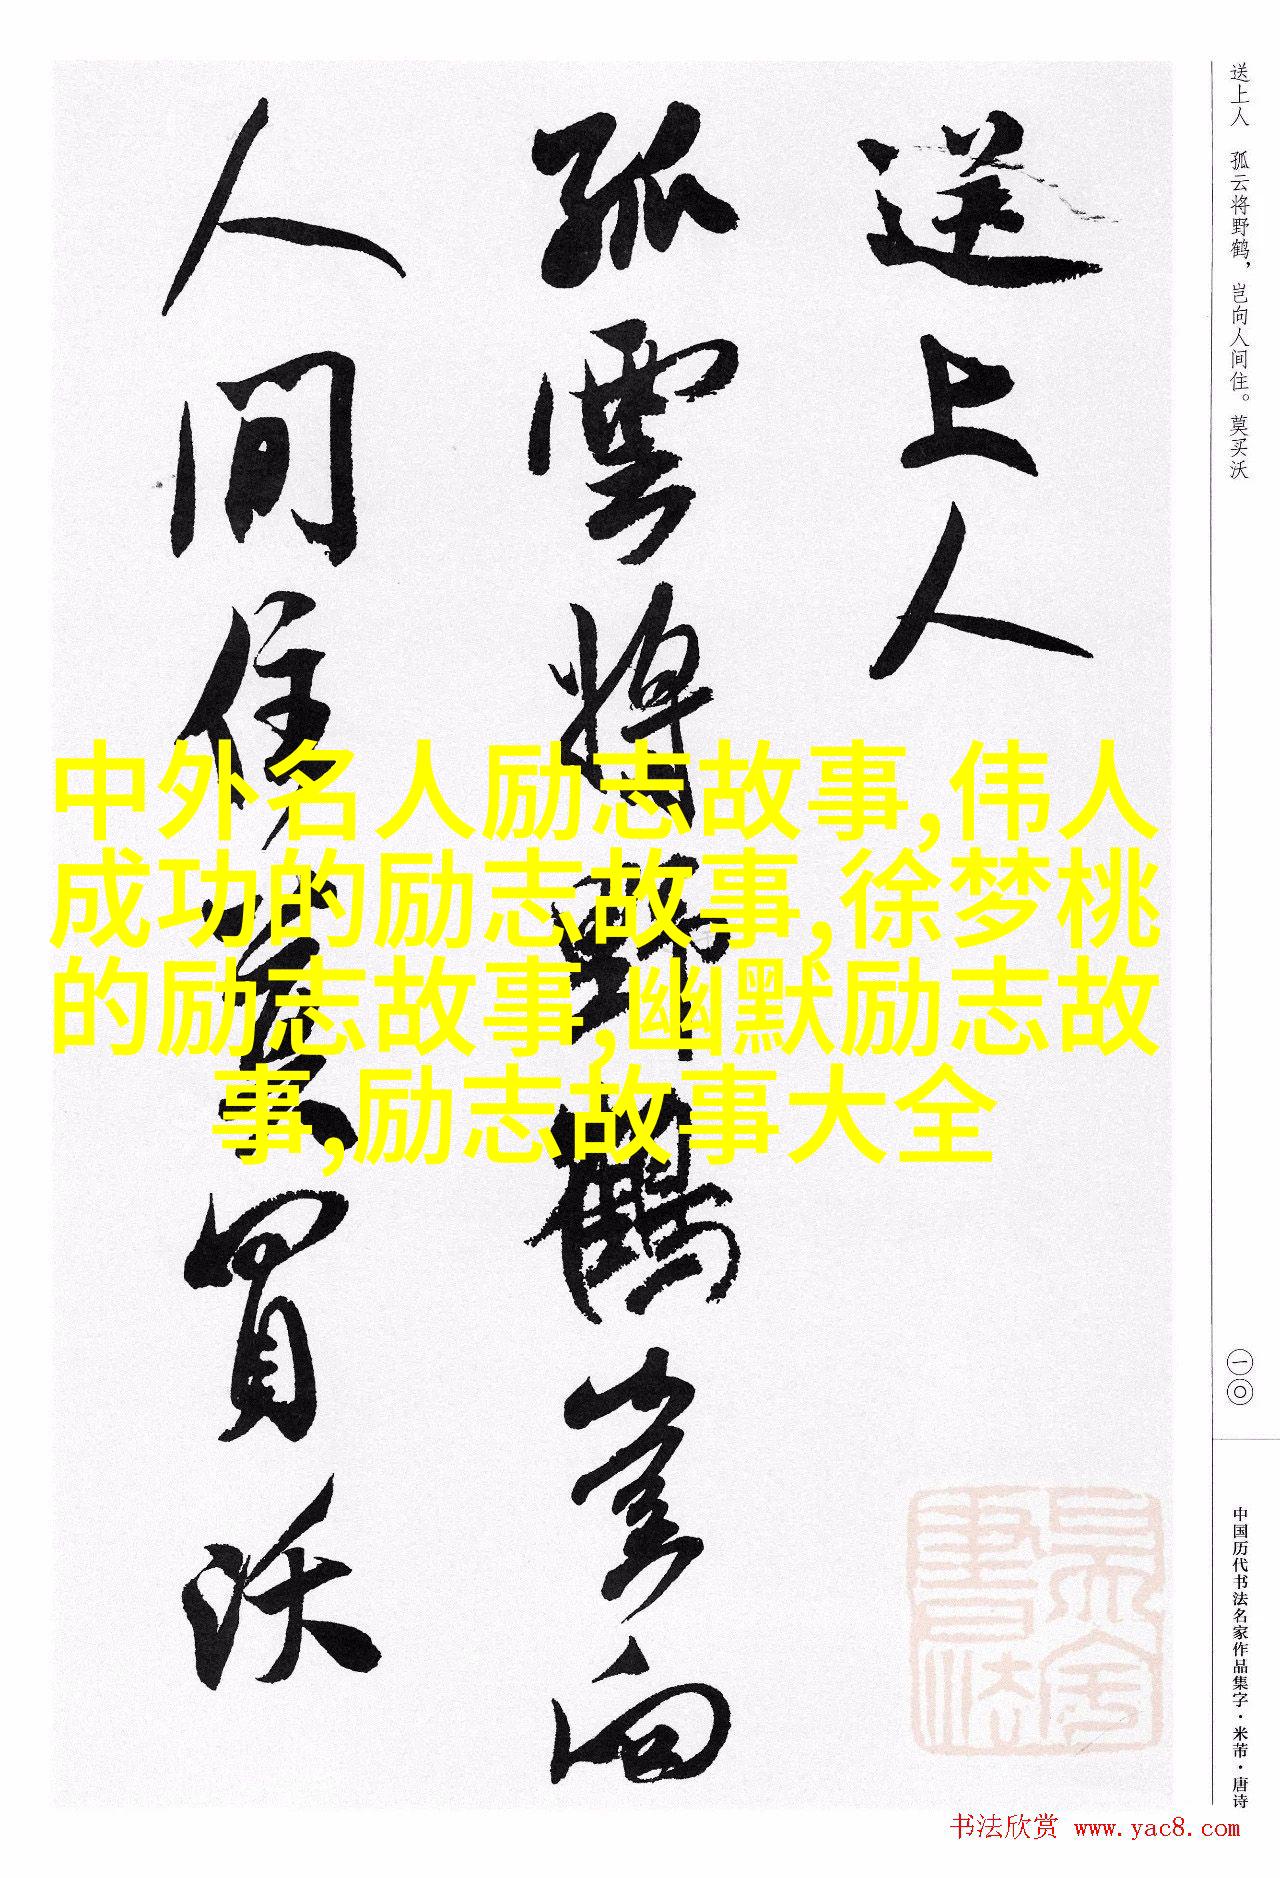 送上人
孤雲將野鶴豈向
人间住莫買沃
中外名人励志故事,伟人
成功的励志故事,徐梦桃
的励志故事,幽默励志故
事,励志故事大全
送上人 孤云将野鹤，岂向人间住。莫买沃
一〇
中国历代书法名家作品集字·米芾·唐诗
书法欣赏 www.yac8.com